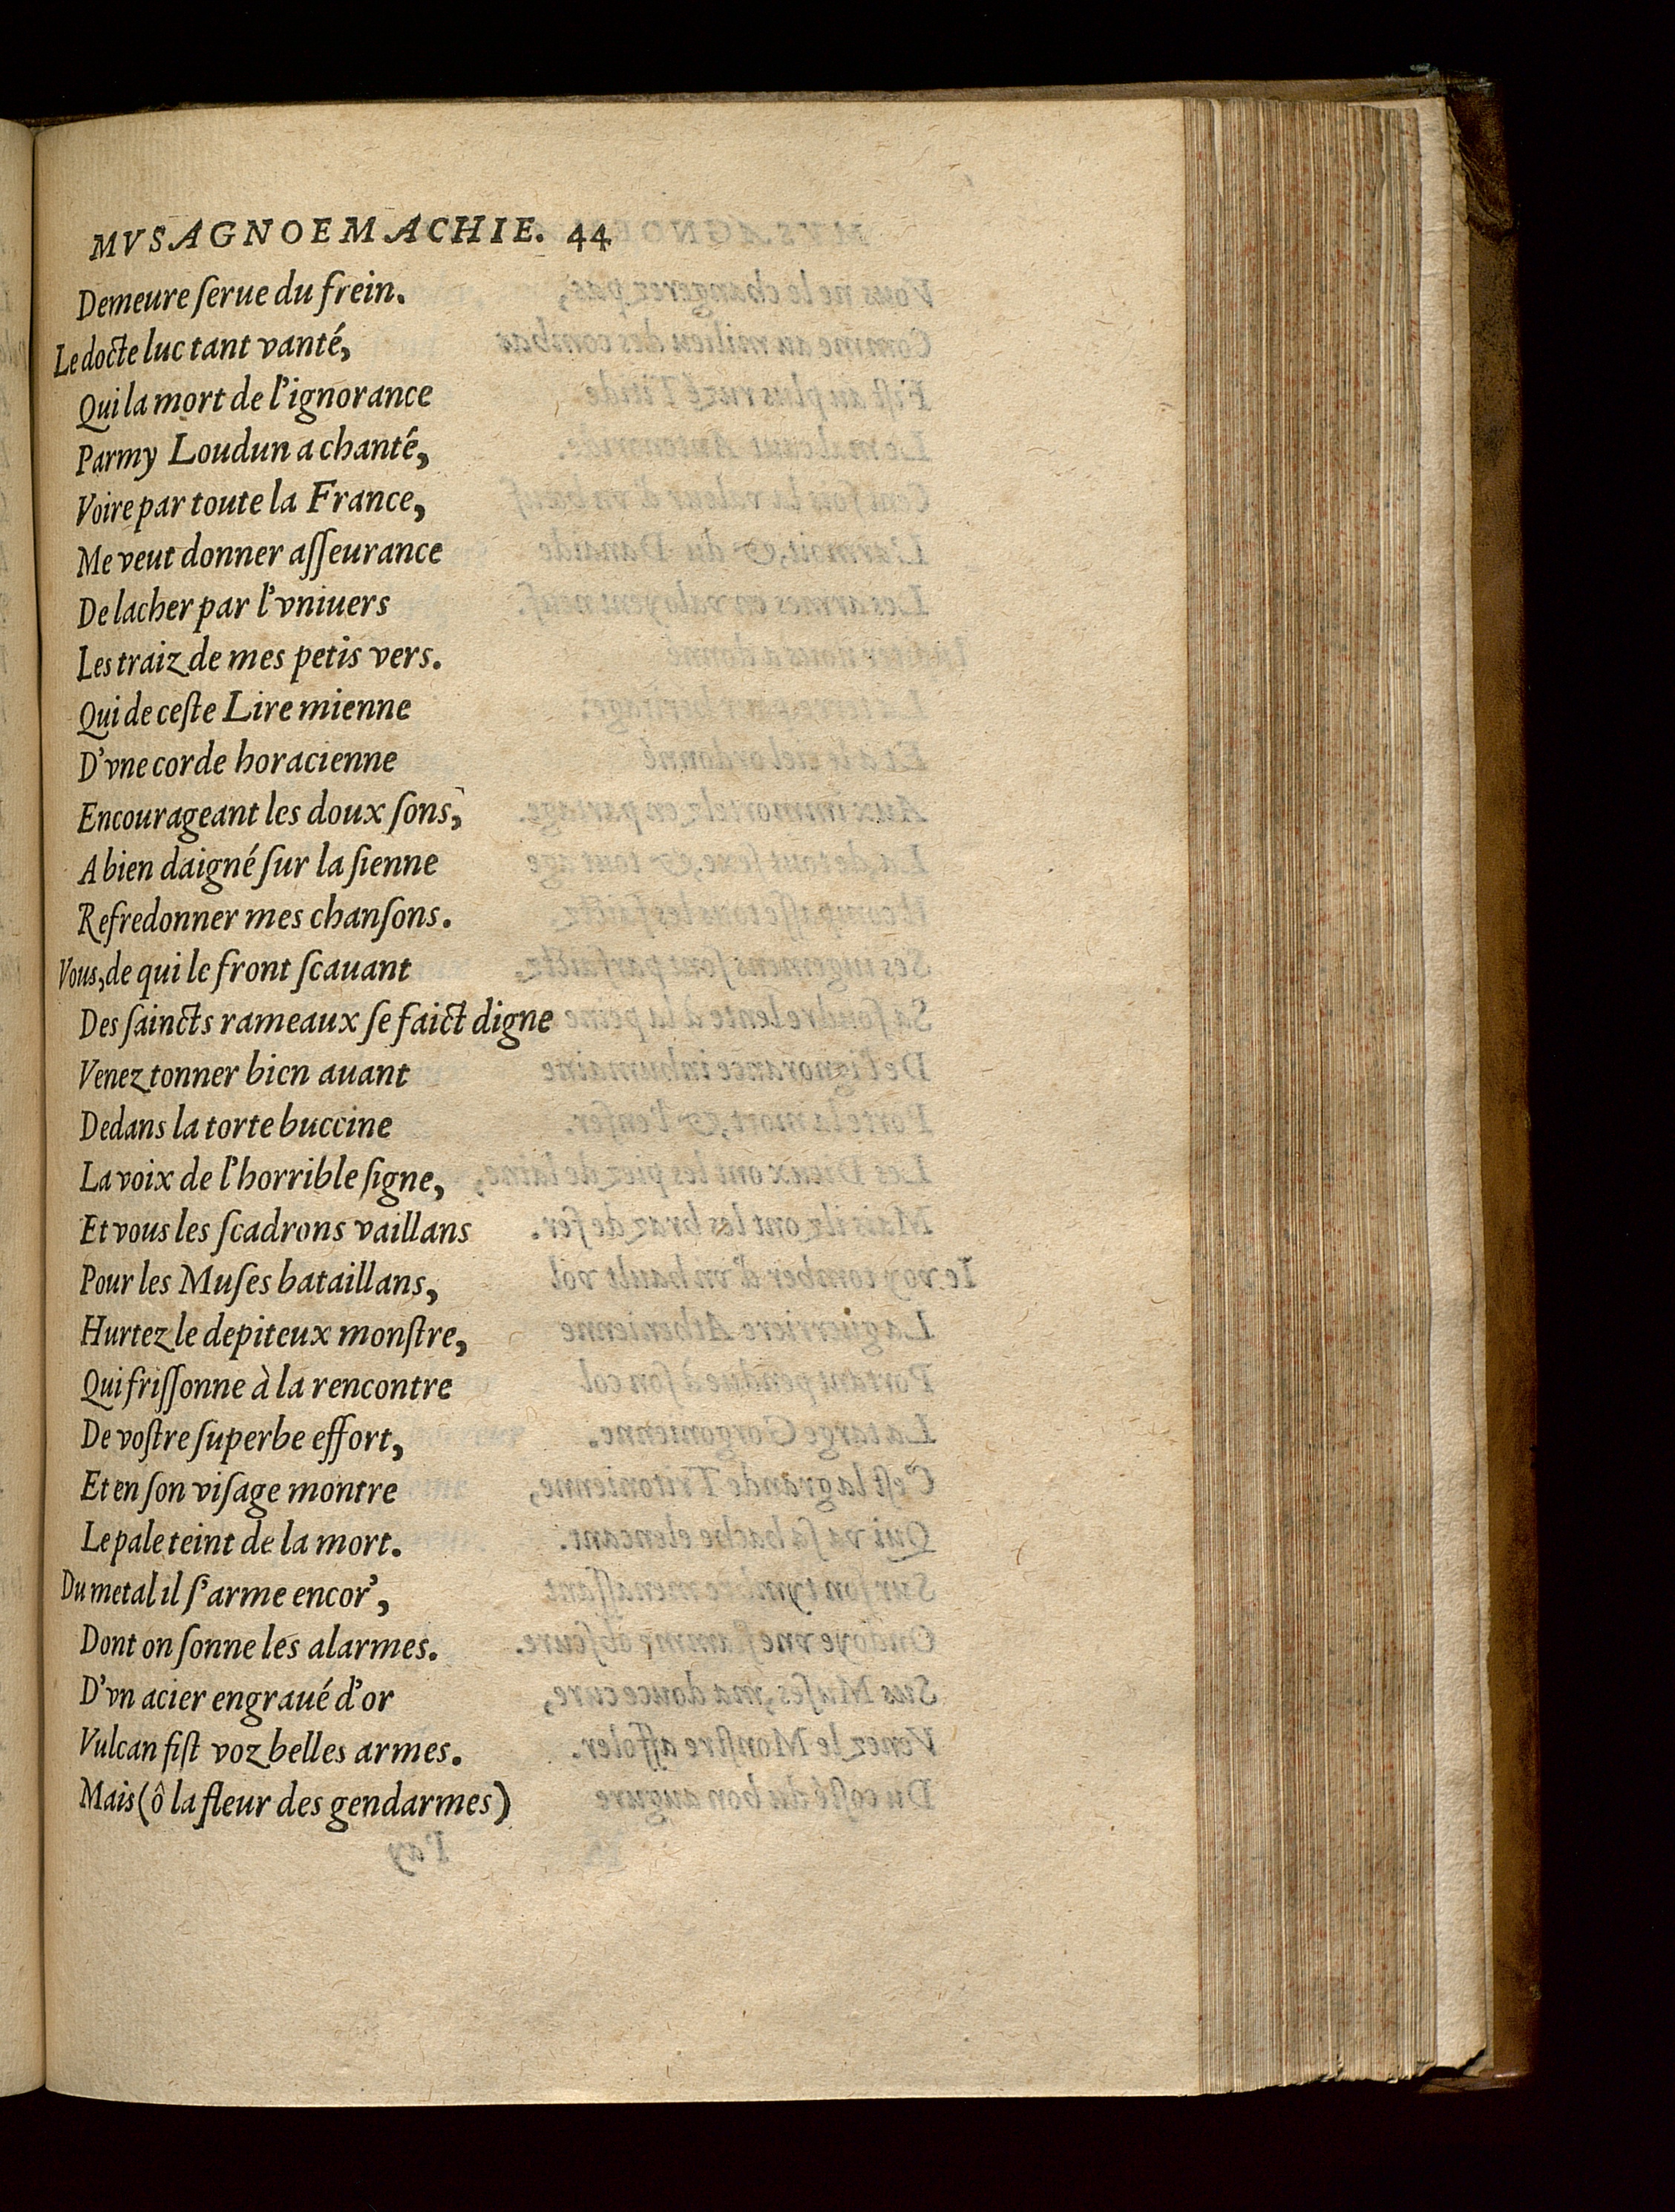 MVSAGNOEMACHIE. 44
Demeure ſerue du frein.
Le docte luc tant vanté,
Qui la mort de l'ignorance
Parmy Loudun a chanté,
Voire par toute la France,
Me veut donner aſſeurance
De lacher par l'vniuers
Les traiz de mes petis vers.
Qui de ceſte Lire mienne
D'vne corde horacienne
Encourageant les doux ſons,
A bien daigné ſur la ſienne
Refredonner mes chanſons.
Vous, de qui le front ſcauant
Des ſaincts rameaux ſe faict digne
Venez tonner bien auant
Dedans la torte buccine
La voix de l'horrible ſigne,
Et vous les ſcadrons vaillans
Pour les Muſes bataillans,
Hurtez le depiteux monſtre,
Qui friſſonne à la rencontre
De voſtre ſuperbe effort,
Et en ſon viſage montre
Le pale teint de la mort.
Du metal il ſ'arme encor',
Dont on ſonne les alarmes.
D'vn acier engraué d'or
Vulcan fiſt voz belles armes.
Mais (ô la fleur des gendarmes)